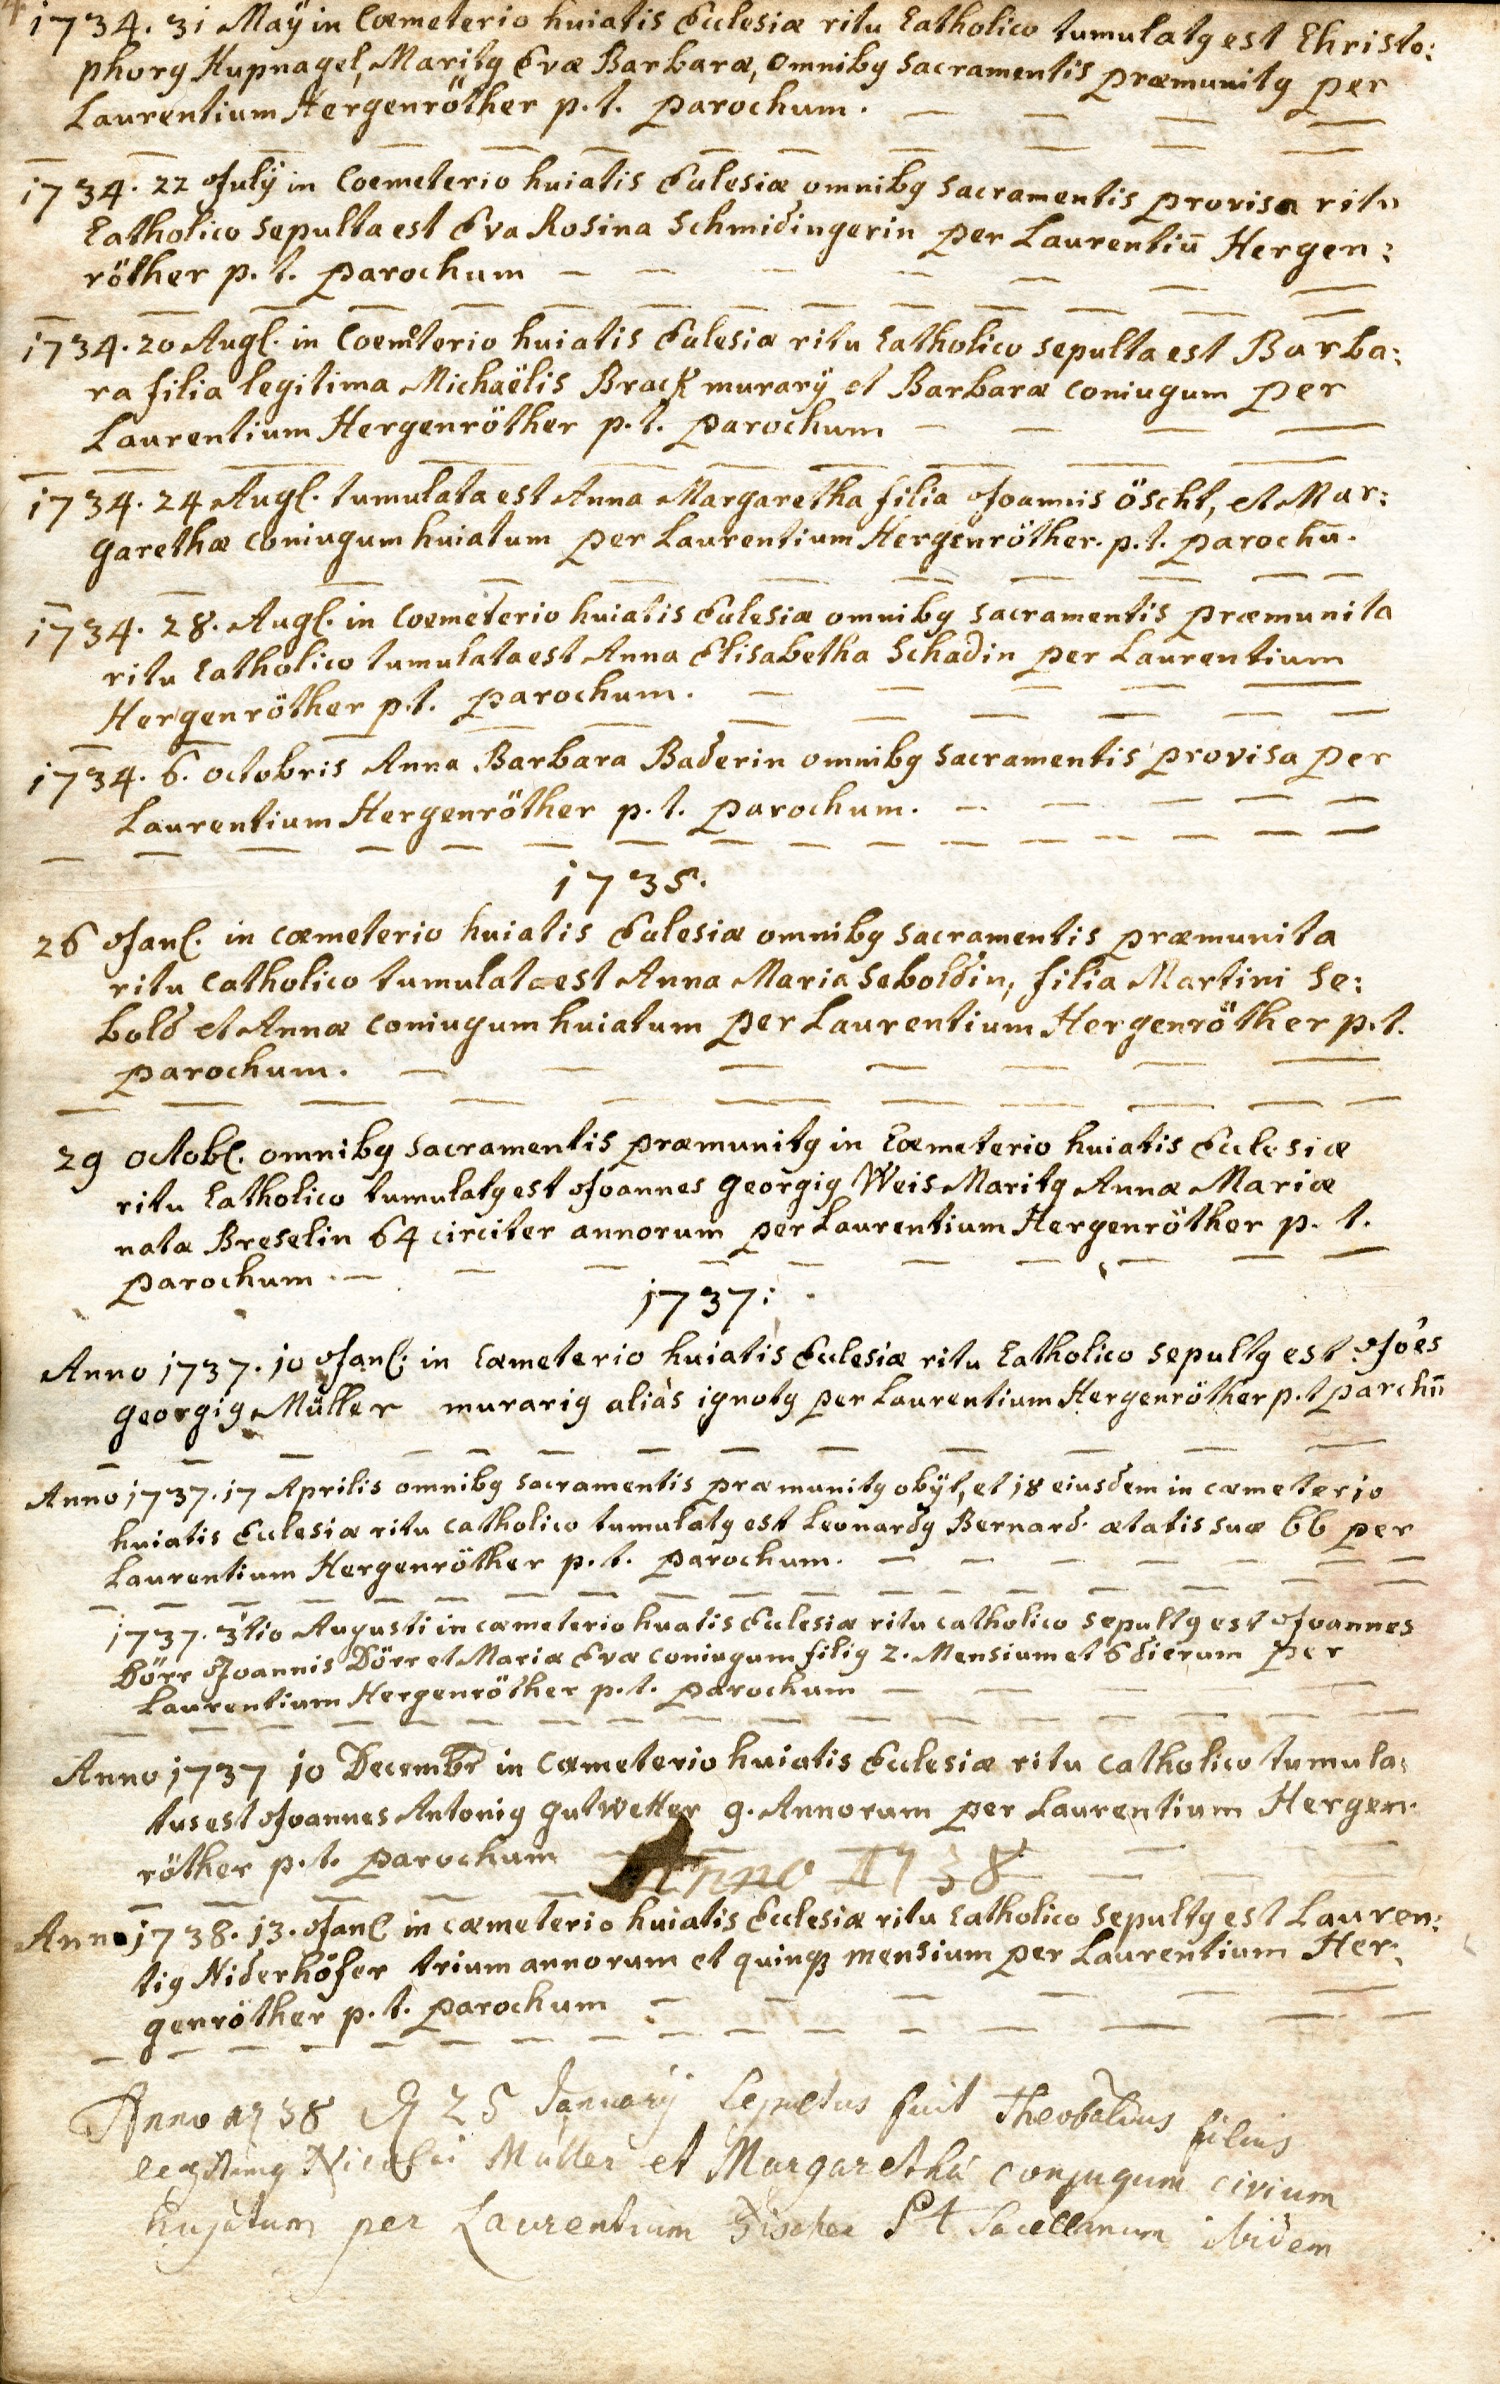 1734. 31 Maÿ in Coemeterio huiatis Ecclesiæ ritu Catholico tumulatg est Christo:
phorg Hupnagel, Maritg Evæ Barbaræ, omnibg Sacramentis præmunitg per
Laurentium Hergenröther p. t. parochum.
1734. 22 Julÿ in Coemeterio huiatis Eclesiæ omnibg sacramentis provisa ritu
Catholico sepulta est Eva Rosina Schmidingerin per Laurentiū Hergen:
röther p. t. parochum
1734. 20 Augl. in Coemeterio huiatis Eclesiæ ritu Catholico sepulta est Barba:
ra filia legitima Michaëlis Brack murarÿ et Barbaræ coniugum per
Laurentium Hergenröther p. t. parochum
1734. 24 Augl. tumulata est Anna Margaretha filia Joannis Öscht, et Mar:
garethæ coniugum huiatum per Laurentium Hergenröther. p. t. parochū.
1734. 28. Augl. in coemeterio huiatis Eclesiæ omnibg sacramentis præmunita
ritu Catholico tumulata est Anna Elisabetha Schadin per Laurentium
Hergenröther p. t. parochum.
1734. 6. octobris Anna Barbara Baderin omnibg sacramentis provisa per
Laurentium Hergenröther p. t. parochum.
1735.
26 Janl. in coemeterio huiatis Eclesiæ omnibg sacramentis præmunita
ritu catholico tumulata est Anna Maria Seboldin, filia Martini Se:
bold et Annæ coniugum huiatum per Laurentium Hergenröther p. t.
parochum.
29 octobl. omnibg sacramentis præmunitg in Coemeterio huiatis Ecclesiæ
ritu Catholico tumulatg est Joannes Georgig Weis Maritg Annæ Mariæ
nata Breselin 64 circiter annorum per Laurentium Hergenröther p. t.
parochum
1737:
Anno 1737. 10 Janl: in Coemeterio huiatis Ecclesiæ ritu Catholico sepultg est Joe͂s
Georgig Müller murarig aliàs ignotg per Laurentium Hergenröther p. t parchū
Anno 1737. 17 Aprilis omnibg sacramentis præmunitg obÿt, et 18 eiusdem in coemeterio
huiatis Ecclesiæ ritu catholico tumulatg est Leonardg Bernard. ætatis suæ 66 per
Laurentium Hergenröther p. t. parochum.
1737. 3tio Augusti in coemeterio huatis Ecclesiæ ritu catholico sepultg est Joannes
Dörr Joannis Dörr et Mariæ Evæ coniugum filig 2. Mensium et 6 dierum per
Laurentium Hergenröther p. t. parochum
Anno 1737 10 Decembr in Coemeterio huiatis Ecclesiæ ritu catholico tumula:
tus est Joannes Antonig Gutwetter 9. Annorum per Laurentium Hergen:
röther p. t. parochum
Anno 1738
Anno 1738. 13. Janl in coemeterio huiatis Ecclesiæ ritu Catholico sepultg est Lauren:
tig Niderhöfer trium annorum et quinqꝫ mensium per Laurentium Her:
genröther p. t. parochum
Anno 1738 25 Januarÿ Sepultus fuit Theobaldus filius
legitimg Nicolai Müller et Margaretha conjugum civium
hujatum per Laurentium Fischer P t Sacellanum ibidem